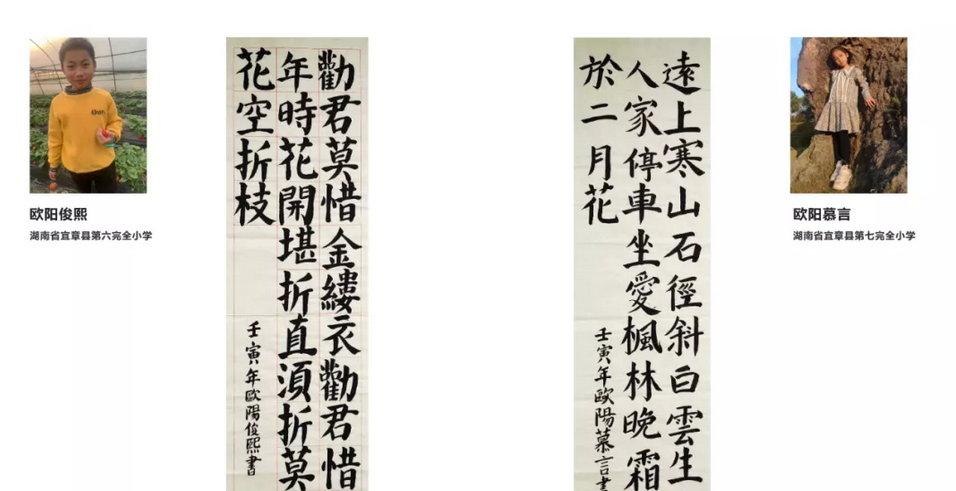 欧阳俊熙
湖南省宜章县第六完全小学
勸君莫惜金縷衣勸君惜
年時花開堪折直湏折莫
花空折枝
壬寅年歐陽俊熙書
遠上寒山石徑斜白雲生
人家停車坐愛楓林晚霜
於二月花
壬寅年歐陽慕言書
欧阳慕言
湖南省宜章县第七完全小学